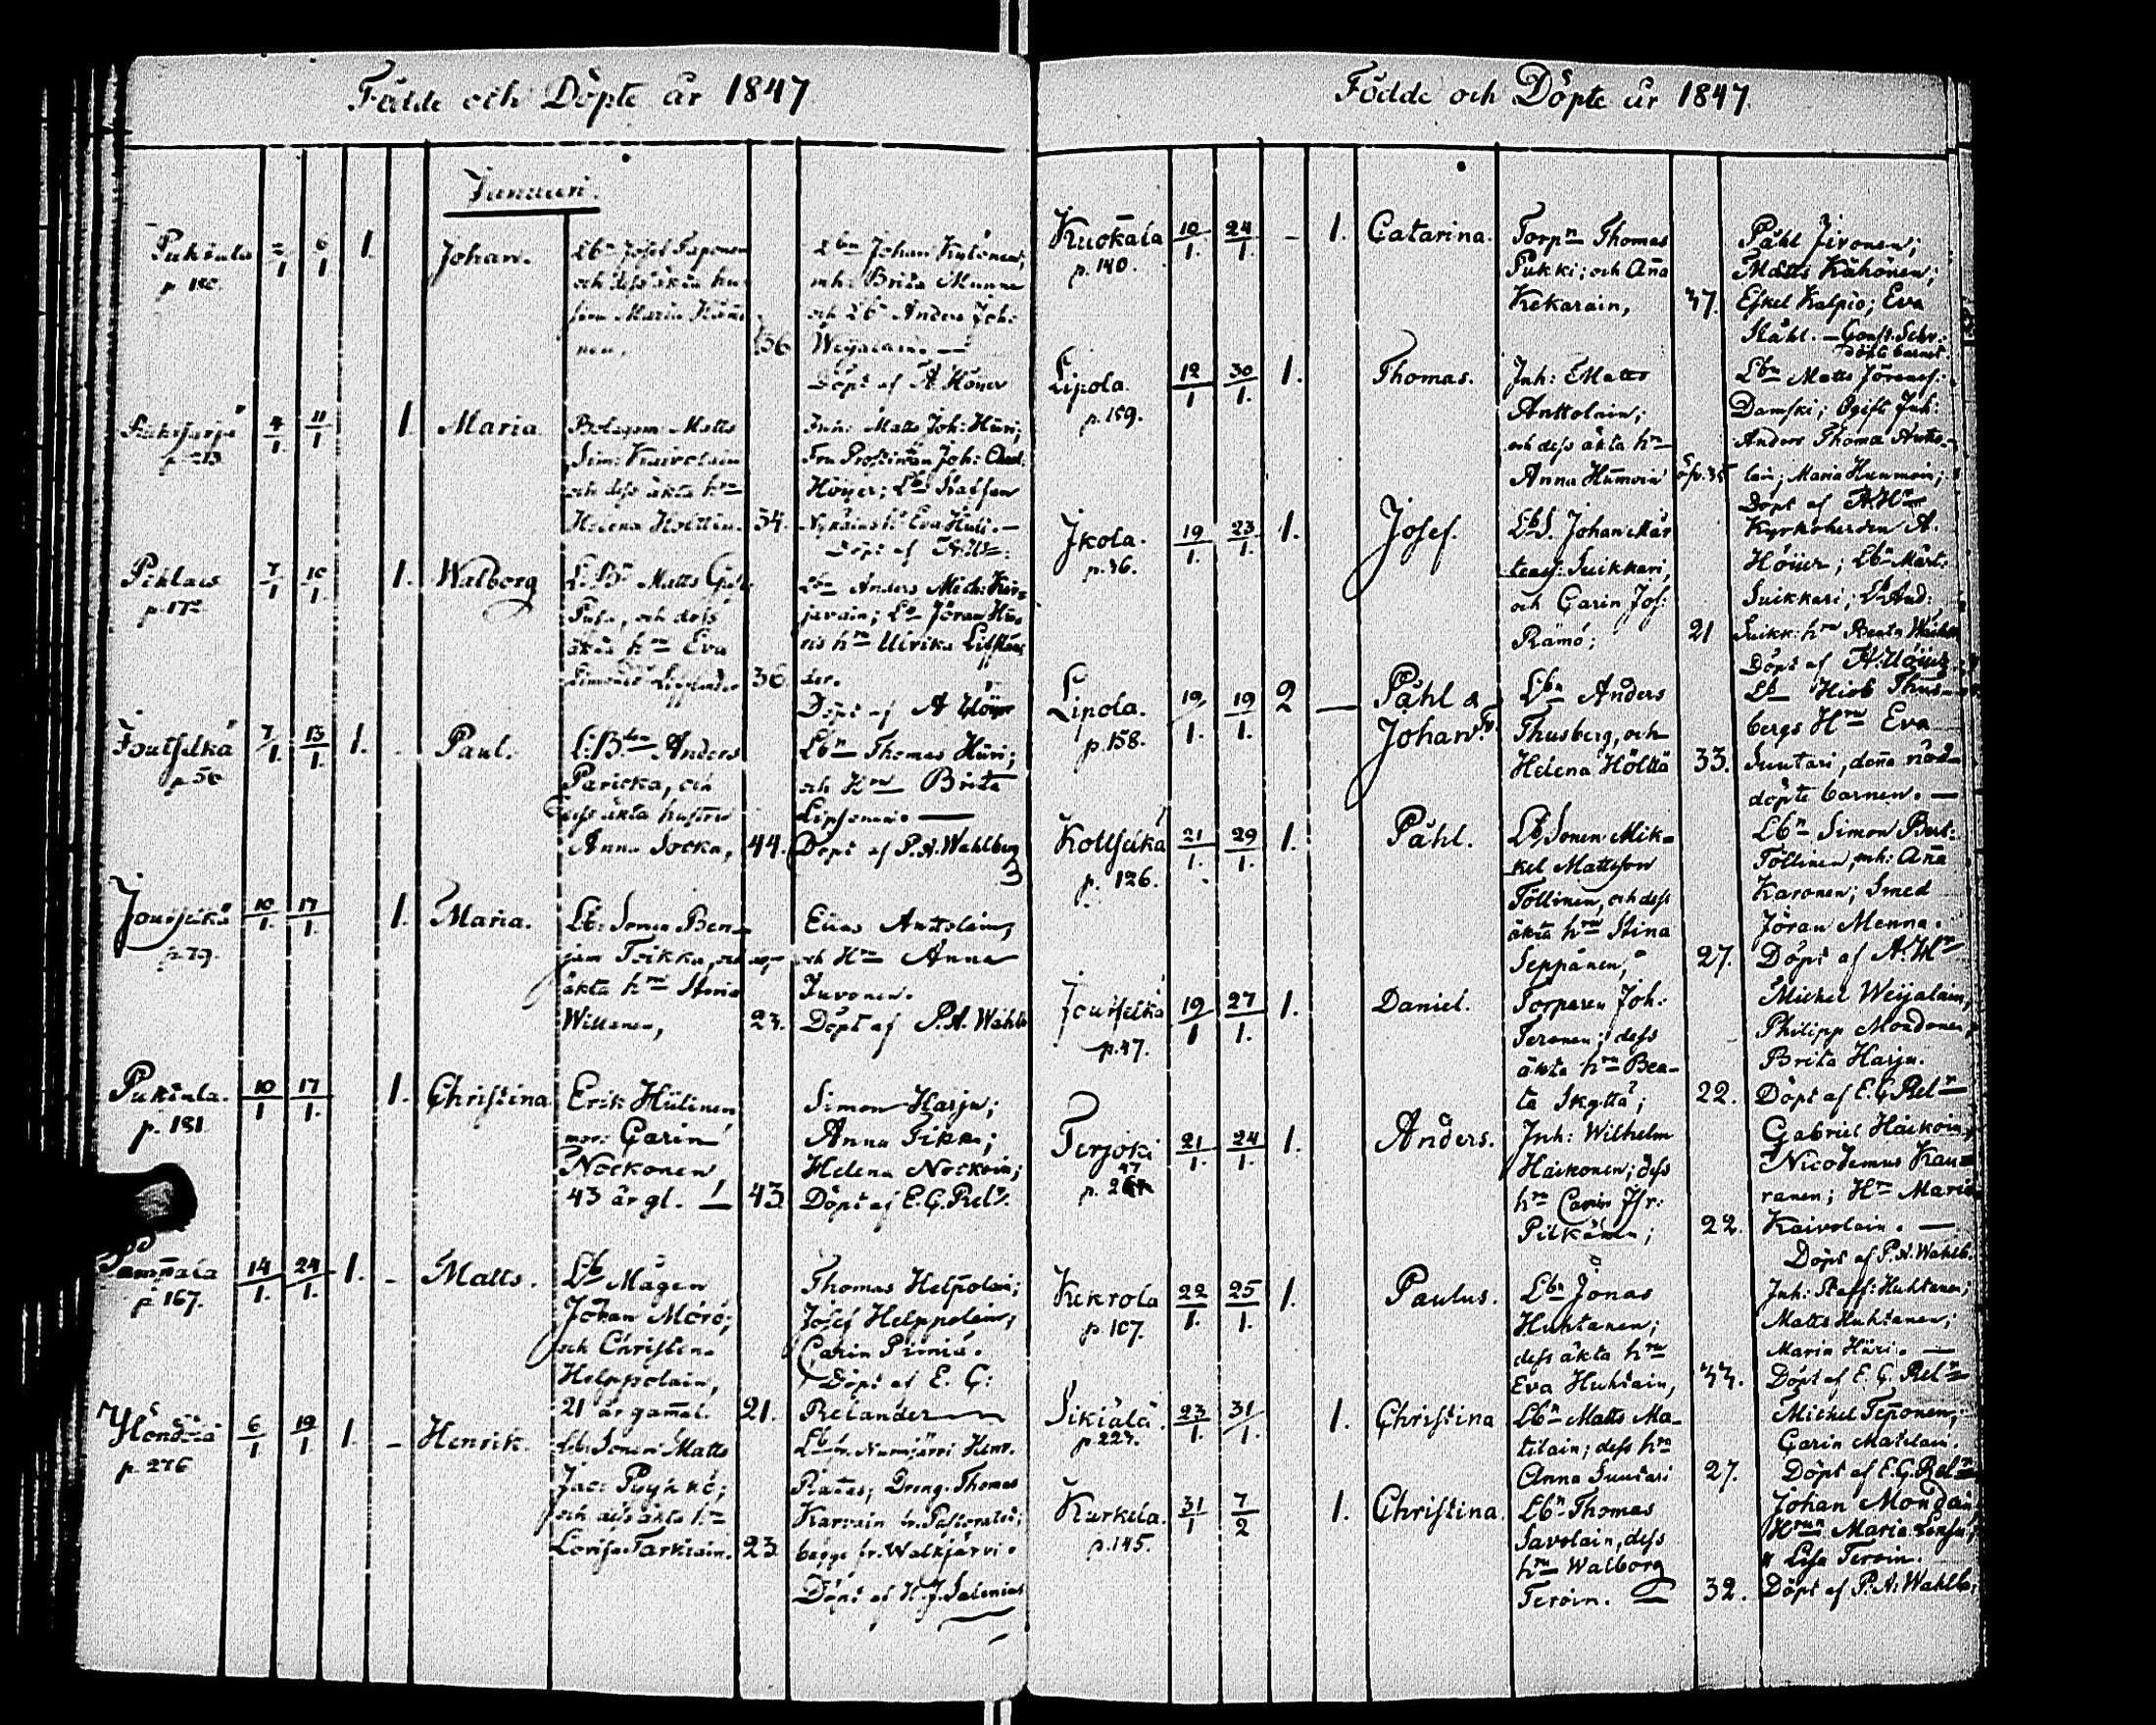 Födde och Döpte år 1847
Januari.
p. 180.
2/1 6/1 1.
Johan.
Lbn Josef Taponen
och dess äkta hu-
stru Maria
nen,
36
Lbn Johan Kylönen;
inh: Brita Munne
och Lbn Anders Joh:
Weijalain. —
Döpt af A Höijer
p. 213
4/1 11/1 1. Maria
Bolagsm: Matts
Sim: Kaivolain
och dess äkta hru
Helena Holttin. 34.
Inh: Matts Joh: Hüri;
Fru Prostinnan Joh: Charl:
Höijer; Lbn Staffan
Eva Huli. —
Döpt af
p. 172
7/1 10/1 1. Walborg
L:Bn Matts
och dess
äkta hru Eva
Simonsd: 36.
Lbn Anders Mich: Kar-
javain; Lbn Jöran Hüi-
ris hru Ulrika
der.
Döpt af A Höijer
Joutselkä
p. 50
7/1 13/1 1. - Paul.
L:Bn Anders
Paricka, och
dess äkta hustru
Anna Socka, 44.
Lbn Thomas Hüri;
och Hru Brita
Lipsonen. —
Döpt af P. A. Wahlberg
Joutselkä
p. 79.
10/1. 17/1. 1. Maria.
Lb: Sonen Ben-
jam Toikka, och
äkta hru Maria
Willanen, 23.
Elias Antolain,
och Hru Anna
Juvonen.
Döpt af P. A. Wahlb
Pukinla.
p. 181
10/1 17/1. 1. Christina
Erik Hülinen
mor: Carin
Nockonen,
43 år gl. — 43.
Simon Harju;
Anna Tikka;
Helena Nockoin;
Döpt af E. G. Reln.
Sampala
p. 167.
14/1. 24/1. 1. - Matts.
Lb Mågen
Johan Mörö;
och Christin.
Helppolain,
21 år gamal. 21.
Thomas Helpolain;
Josef Helppolain;
Carin Pirniä.
Döpt af E. G:
Relander
p. 276
6/1 19/1. 1. - Henrik.
Lb: Sonen Matts
Jac: Pöyhkö;
och dess äkta hru
Lovisa Tarkiain. 23
Lb fr. Nurmijärvi Henr.
Ratas; Dreng. Thomas
Karvain fr. Pastoratet;
bägge fr. Walkjärvi.
Döpt af H. J. Salenius
Födde och Döpte år 1847
Kuokala
p. 140.
10/1. 24/1. - 1. Catarina.
Torpn Thomas
Pukki; och Anna
Kekarain, 37.
Påhl Jivonen;
Matts Kähönen;
Eskel Kalpio; Eva
Ståhl. — Const. Schr:
döpte barnet.
Lipola.
p. 159.
12/1 30/1. 1. Thomas.
Inh: Matts
Anttolain;
och dess äkta hru
Anna Humoin öfv. 35
Lbn Matts Jöranss:
Damski; Ogift Inh:
Anders Thoma Anto-
lain; Maria Huumoin;
Döpt af A. Hr
Jkola.
p. 36.
19/1. 23/1. 1. Josef.
LbS. Johan Mår
tenss: Suikkari,
och Carin Jos:
Rämö; 21
Kyrkoherden A.
Höijer; Lbn Mårt:
Suikkari; Lb And:
Suikk: hru Beata
Döpt af A. Höijer
Lipola.
p. 158.
19/1. 19/1. 2 — Påhl &
Johan.
Lbn Anders
Thusberg, och
Helena Hölttä 33.
Lb Hiob Thus-
bergs Hru Eva
Suutari, denna nöd-
döpte barnen. —
Kottselkä
p. 126.
21/1. 29/1. 1. Påhl.
Lb Sonen Mik-
kel Mattsson
Töllinen, och dess
äkta hru Stina
Seppänen, 27.
Lbn Simon Bert:
Töllinen, inh: Anna
Karonen; Smed
Jöran Menna.
Döpt af A. Hr
Joutselkä
p. 47.
19/1 27/1. 1. Daniel.
Torparen Joh:
Teronen; dess
äkta hru Bea-
ta Skyttä; 22.
Michel Weijalain,
Philipp Mondonen,
Brita Harju.
Döpt af E. G. Reln
Terjoki
47
p. 2
21/1. 24/1. 1. Anders.
Inh: Wilhelm
Haikonen; dess
hru Carin Isr:
Pitkänen; 22.
Gabriel Haikoin,
Nicodemus Kau-
ranen; Hru Maria
Kaivolain. —
Döpt af P. A. Wahlb.
Kekrola
p. 107.
22/1. 25/1. 1. Paulus.
Lbn Jonas
Huhtanen;
dess äkta hru
Eva Huhtain,
Inh: Staff: Huhtanen;
Matts Huhtanen;
Maria Hüri. —
Döpt af E. G. Reln
Sikiälä.
p. 227.
23/1. 31/1. 1. Christina
Lbn Matts Ma-
tilain; dess hru
Anna Suutari 27.
Michel Teponen;
Carin Matilain.
Döpt af E. G. Reln
Kurkela.
p. 145.
31/1 7/2 1. Christina.
Lbn Thomas
Savolain, dess
hru Walborg
Teroin. — 32.
Johan Mondain
Hrun Maria
Lisa Teroin.
Döpt af P. A. Wahlb.